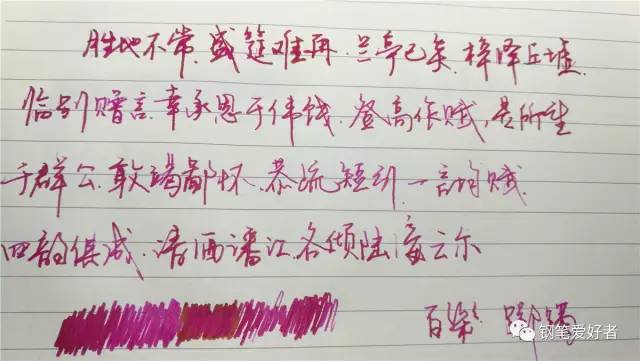 胜地不常,盛筵难再.兰亭已矣,梓泽丘墟.
临别赠言,幸承恩于伟饯.登高作赋,是所望
于群公.敢竭鄙怀,恭疏短引.一言均赋,
四韵俱成.请洒潘江,各倾陆海云尔
百乐
钢笔爱好者